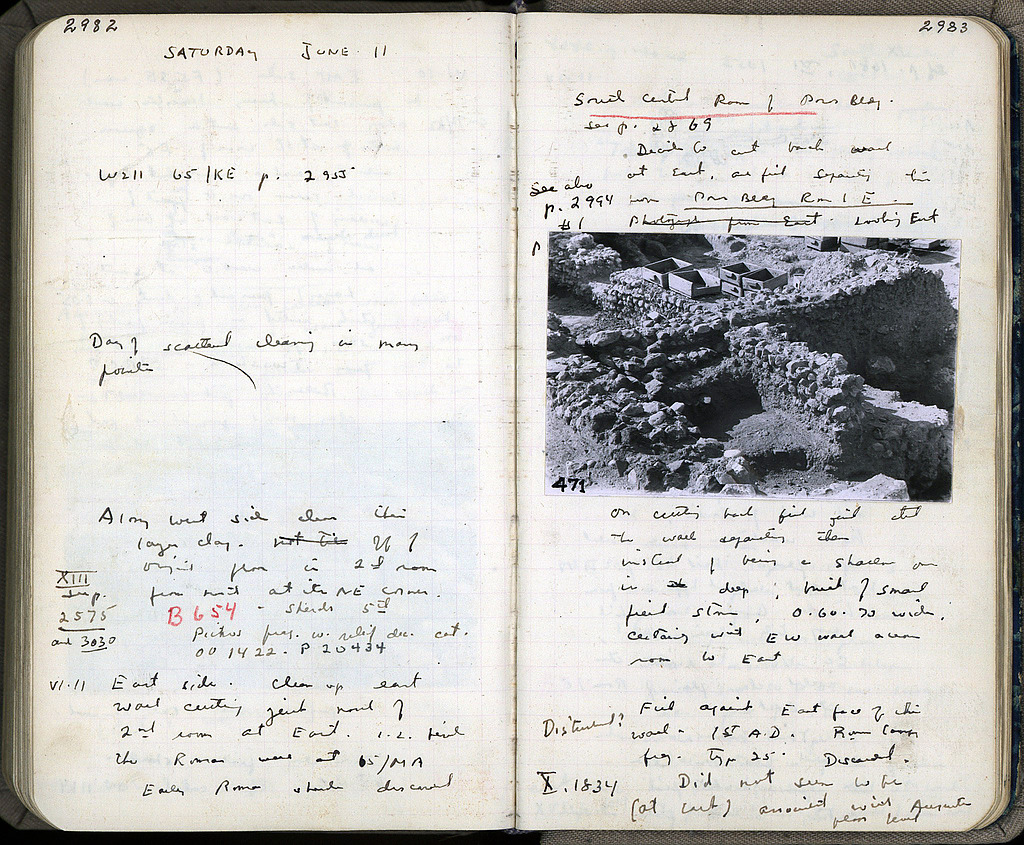 2982
SATURDAY JUNE 11
W211 65/KE p. 2955
Day of scattered cleaning in many
points
Along west side clean this
layer clay.
from in 2nd room
from north at its NE corner.
XIII
see p.
2575
and 3030
B 654 - sherds 5th
Pithos frag. w. relief dec. cat.
001422. P 20434
VI.11 East side. Clean up east
wall cutting joint north of
2nd room at East. i.e. find
the Roman wall at 65/MA
Early Roman sherds discard
2983
South Central Room of Poros Bldg.
see p. 2869
Decide to cut back wall
at East, and fill separating this
See also
p. 2994
from Poros Bldg Rm 1 E.
#1 Photograph from East. Looking East
P
471
on cutting back fill find that
the wall separating them
instead of being a shallow one
is deep; built of small
field stone, 0.60-70 wide;
certainly with EW wall across
room to East
Disturbed?
Fill against East face of this
wall - 1st A.D. Roman lamp
frag. Type 25. Discard.
X.1834 Did not seem to be
(at last) associated with Augustan
floor level